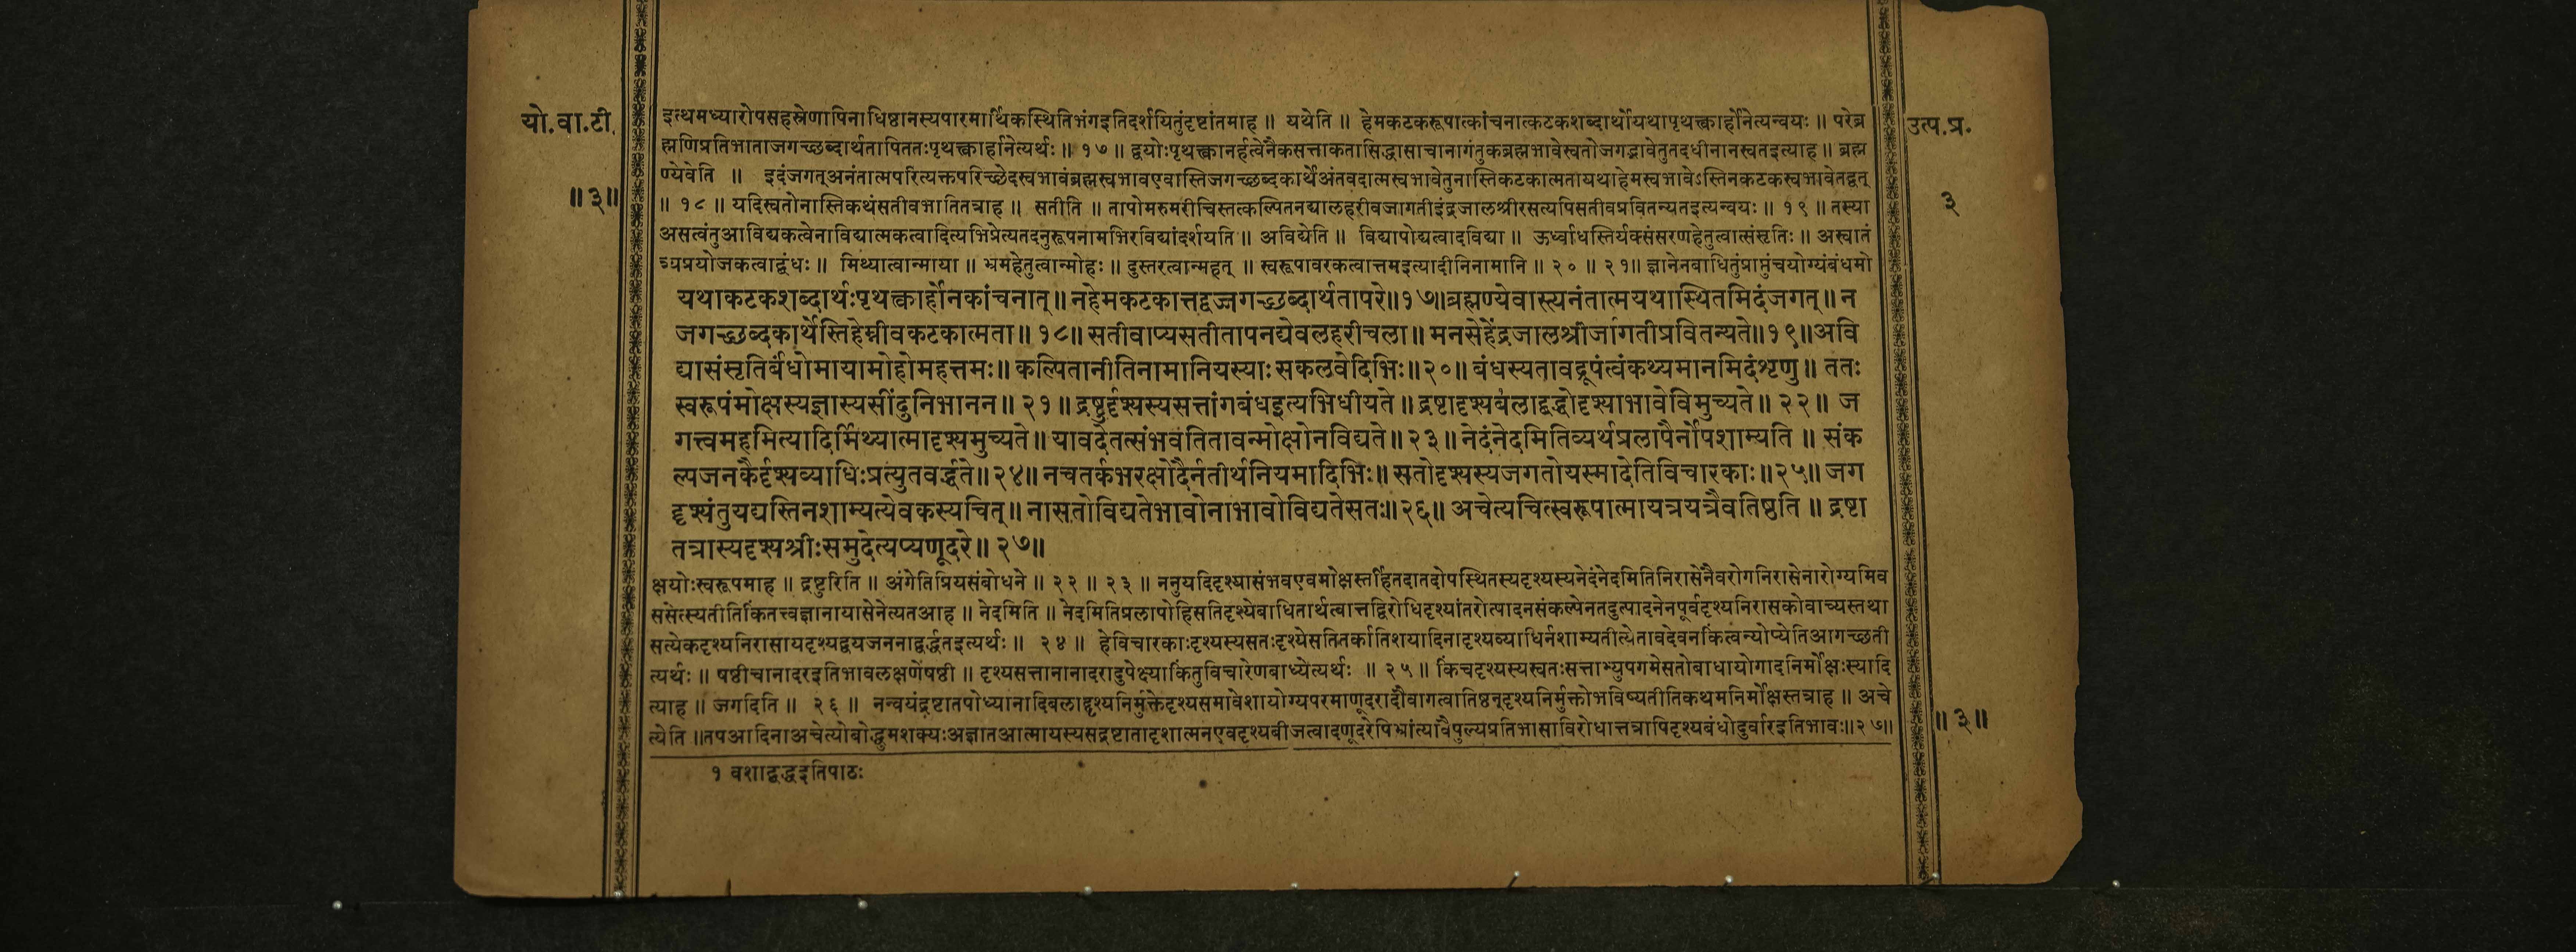 यो.वा.टी.
॥३॥
उत्प.प्र.
३
इत्थमध्यारोपसहस्रेणापिनाधिष्ठानस्यपारमार्थिकस्थितिभंगइतिदर्शयितुंदृष्टांतमाह ॥ यथेति ॥ हेमकटकरूपात्कांचनात्कटकशब्दार्थोयथापृथक्त्वार्होनेत्यन्वयः ॥ परेब्र
ह्मणिप्रतिभाताजगच्छब्दार्थतापिततःपृथक्त्वार्हानेत्यर्थः ॥ १७ ॥ द्वयोःपृथक्त्वानर्हत्वेनैकसत्ताकतासिद्धासाचानागंतुकब्रह्मभावेस्वतोजगद्भावेतुतदधीनानस्वतइत्याह ॥ ब्रह्म
ण्येवेति ॥ इदंजगत्अनंतात्मपरित्यक्तपरिच्छेदस्वभावंब्रह्मस्वभावएवास्तिजगच्छब्दकार्थेअंतवदात्मस्वभावेतुनास्तिकटकात्मतायथाहेमस्वभावेऽस्तिनकटकस्वभावेतद्वत्
॥ १८ ॥ यदिस्वतोनास्तिकथंसतीवभातितत्राह ॥ सतीति ॥ तापोमरुमरीचिस्तत्कल्पितनद्यालहरीवजागतीइंद्रजालश्रीरसत्यपिसतीवप्रवितन्यतइत्यन्वयः ॥ १९ ॥ तस्या
असत्वंतुआविद्यकत्वेनाविद्यात्मकत्वादित्यभिप्रेत्यतदनुरूपनामभिरविद्यांदर्शयति ॥ अविद्येति ॥ विद्यापोद्यत्वादविद्या ॥ ऊर्ध्वाधस्तिर्यक्संसरणहेतुत्वात्संसृतिः ॥ अस्वातं
त्र्यप्रयोजकत्वाद्बंधः ॥ मिथ्यात्वान्माया ॥ भ्रमहेतुत्वान्मोहः ॥ दुस्तरत्वान्महत् ॥ स्वरूपावरकत्वात्तमइत्यादीनिनामानि ॥ २० ॥ २१ ॥ ज्ञानेनबाधितुंप्राप्तुंचयोग्यंबंधमो
यथाकटकशब्दार्थःपृथक्त्वार्होनकांचनात् ॥ नहेमकटकात्तद्वज्जगच्छब्दार्थतापरे ॥१७॥ब्रह्मण्येवास्त्यनंतात्मयथास्थितमिदंजगत् ॥ न
जगच्छब्दकार्थेस्तिहेम्नीवकटकात्मता ॥ १८ ॥ सतीवाप्यसतीतापनद्येवलहरीचला ॥ मनसेहेंद्रजालश्रीर्जागतीप्रवितन्यते॥१९॥अवि
द्यासंसृतिर्बंधोमायामोहोमहत्तमः ॥ कल्पितानीतिनामानियस्याः सकलवेदिभिः ॥२०॥ बंधस्यतावद्रूपंत्वंकथ्यमानमिदंशृणु ॥ ततः
स्वरूपंमोक्षस्यज्ञास्यसींदुनिभानन ॥ २१ ॥ द्रष्टुर्दृश्यस्यसत्तांगबंधइत्यभिधीयते ॥ द्रष्टादृश्यबलाद्बद्धोदृश्याभावेविमुच्यते ॥ २२ ॥ ज
गत्त्वमहमित्यादिर्मिथ्यात्मादृश्यमुच्यते ॥ यावदेतत्संभवंतितावन्मोक्षोनविद्यते ॥ २३ ॥ नेदंनेदमितिव्यर्थप्रलापैर्नोपशाम्यति ॥ संक
ल्पजनकैर्दृश्यव्याधिःप्रत्युतवर्द्धते॥२४॥ नचतर्कभरक्षोदैर्नतीर्थनियमादिभिः ॥ सतोदृश्यस्यजगतोयस्मादेतिविचारकाः ॥२५॥ जग
द्दृश्यंतुयद्यस्तिनशाम्यत्येवकस्यचित् ॥ नासतोविद्यतेभावोनाभावोविद्यतेसतः॥२६॥ अचेत्यचित्स्वरूपात्मायत्रयत्रैवतिष्ठति ॥ द्रष्टा
तत्रास्यदृश्यश्रीःसमुदेत्यप्यणूदरे ॥ २७॥
क्षयोःस्वरूपमाह ॥ द्रष्टुरिति ॥ अंगेतिप्रियसंबोधने ॥ २२ ॥ २३ ॥ ननुयदिदृश्यासंभवएवमोक्षस्तर्हितदातदोपस्थितस्यदृश्यस्यनेदंनेदमितिनिरासेनैवरोगनिरासेनारोग्यमिव
ससेत्स्यतीतिकिंतत्त्वज्ञानायासेनेत्यतआह ॥ नेदमिति ॥ नेदमितिप्रलापोहिसतिदृश्येबाधितार्थत्वात्तद्विरोधिदृश्यांतरोत्पादनसंकल्पेनतदुत्पादनेनपूर्वदृश्यनिरासकोवाच्यस्तथा
सत्येकदृश्यनिरासायदृश्यद्वयजननाद्वर्द्धतइत्यर्थः ॥ २४ ॥ हेविचारकाःदृश्यस्यसतःदृश्येसतितर्कातिशयादिनादृश्यव्याधिर्नशाम्यतीत्येतावदेवनकिंत्वन्योप्येतिआगच्छती
त्यर्थः ॥ षष्ठीचानादरइतिभावलक्षणेषष्ठी ॥ दृश्यसत्तानानादरादुपेक्ष्याकिंतुविचारेणबाध्येत्यर्थः ॥ २५ ॥ किंचदृश्यस्यस्वतःसत्ताभ्युपगमेसतोबाधायोगादनिर्मोक्षःस्यादि
त्याह ॥ जगदिति ॥ २६ ॥ नन्वयंद्रष्टातपोध्यानादिबलाद्दृश्यनिर्मुक्तेदृश्यसमावेशायोग्यपरमाणूदरादौवागत्वातिष्ठन्दृश्यनिर्मुक्तोभविष्यतीतिकथमनिर्मोक्षस्तत्राह ॥ अचे
त्येति ॥तपआदिनाअचेत्योबोद्धुमशक्यःअज्ञातआत्मायस्यसद्रष्टातादृशात्मनएवदृश्यबीजत्वादणूदरेपिभ्रांत्यावैपुल्यप्रतिभासाविरोधात्तत्रापिदृश्यबंधोदुर्वारइतिभावः॥२७॥
॥३॥
१ वशाद्बद्धइतिपाठः